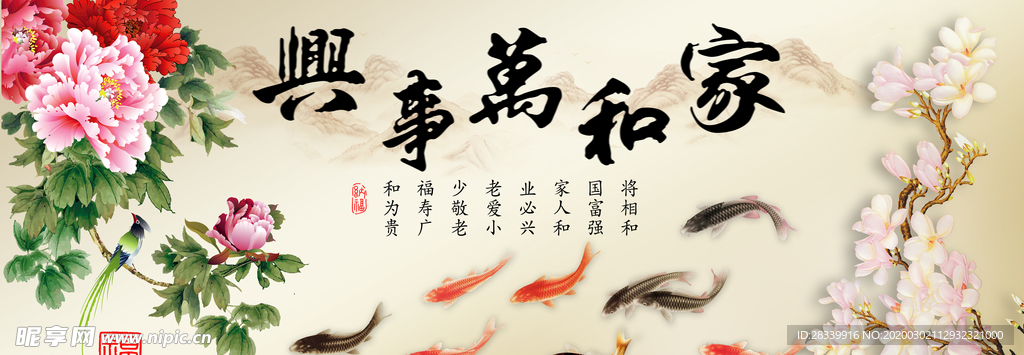 家和萬事興
将相和
国富强
家人和
业必兴
老爱小
少敬老
福寿广
和为贵
昵享网 www.nipic.cn
ID:28339916 NO:20200302112932321000